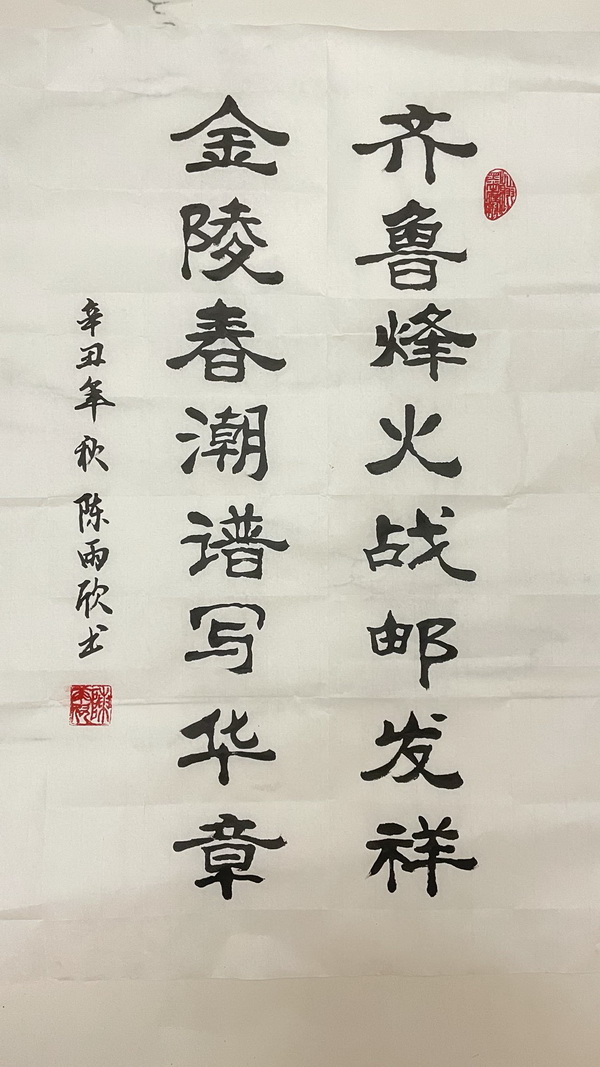 齐鲁烽火战邮发祥
金陵春潮谱写华章
辛丑年秋 陈雨欣书